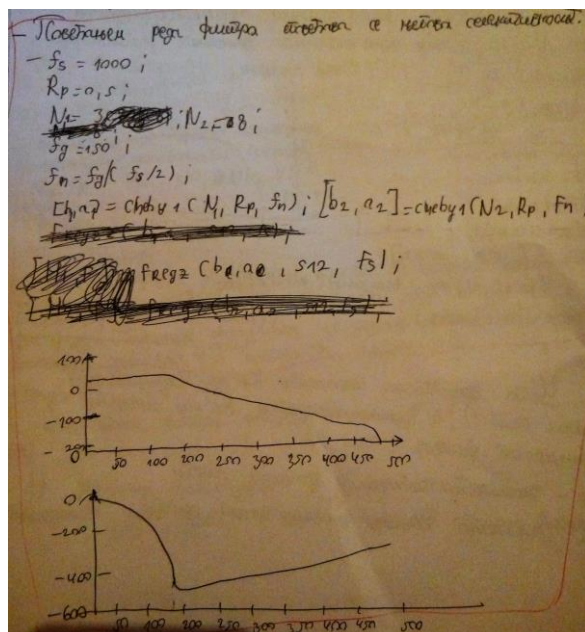 - Повећањем реда филтра се селективност.
- fs = 1000 ;
Rp = 0,5 ;
N1 = 3 ; N2 = 8 ;
fg = 150 ;
fn = fg/( fs/2 ) ;
= cheby1 ( N1, Rp, fn ) ; [b2, a2] = cheby1(N2, Rp, Fn
fregz ( , 512, fs) ;
100
0
-100
0 50 100 200 250 300 350 400 450 500
0
-200
-400
-600
50 100 150 200 250 300 350 400 450 500